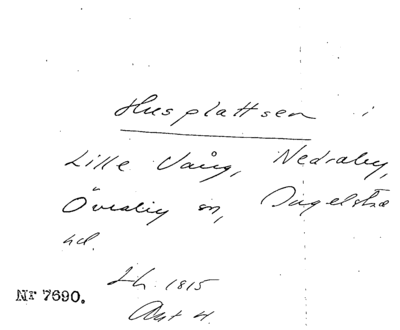 Husplattsen i
Lille Vång, Nedraby,
Övraby sn, Ingelsta
hd.
Lh. 1815
Akt 4.
Nr 7690.